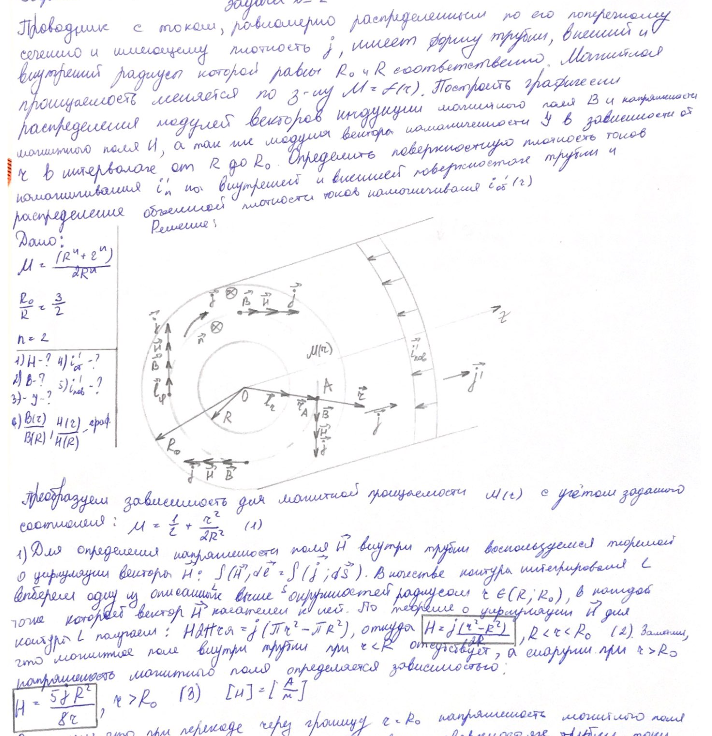 Задача № 2
Проводник с током, равномерно распределенным по его поперечному
сечению и имеющему плотность j, имеет форму трубы, внешний и
внутренний радиусы которой равны R₀ и R соответственно. Магнитная
проницаемость меняется по з-ну M = f(r). Построить графически
распределения модулей векторов индукции магнитного поля B и напряженности
магнитного поля H, а так же модуля вектора намагниченности y в зависимости от
r в интервале от R до R₀. Определить поверхностную плотность токов
намагничивания i'п на внутренней и внешней поверхностях трубы и
распределение объемной плотности токов намагничивания i'об (r)
Дано:
Решение:
M = (Rⁿ + rⁿ) / 2Rⁿ
R₀/R = 3/2
n = 2
1) H-? 4) i'об-?
2) B-? 5) i'пов-?
3) y-?
6) B(r)/B(R), H(r)/H(R) - граф.
j B H j
n
j H B
M(r)
i'пов
z
j'
O A r
R
B
j
R₀
H
j H B
Преобразуем зависимость для магнитной проницаемости M(r) с учётом заданного
соотношения: M = 1/2 + r²/2R² (1)
1) Для определения напряженности поля H внутри трубы воспользуемся теоремой
о циркуляции вектора H: ∫(H; dl) = ∫(j; dS). В качестве контура интегрирования L
выберем одну из описанных выше окружностей радиусом r ∈ (R; R₀), в каждой
точке которой вектор H касателен к ней. По теореме о циркуляции H для
контура L получаем: H2πr = j(πr² - πR²), откуда H = j(r² - R²)/2r, R < r < R₀ (2). Заметим,
что магнитное поле внутри трубы при r < R отсутствует, а снаружи при r > R₀
напряженность магнитного поля определяется зависимостью:
H = 5jR²/8r, r > R₀ (3) [H] = [A/м]
что при переходе через границу r = R₀ напряженность магнитного поля